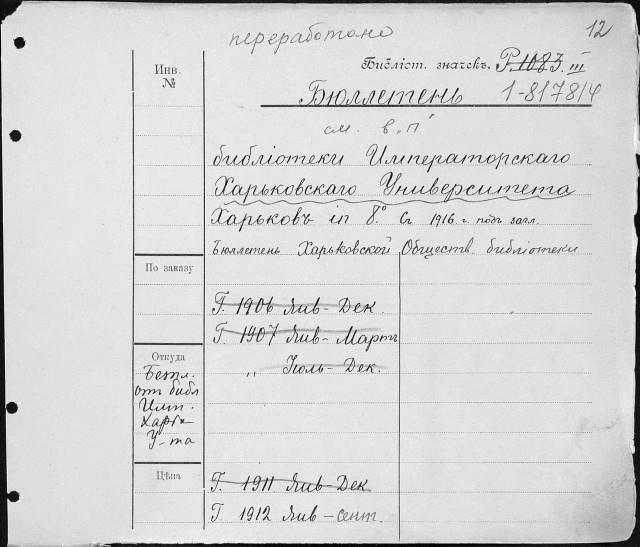 переработано
12
Инв. №
Библіот. значекъ. Р.1083 III
Бюллетень 1-8178/4
см. в."П"
библіотеки Императорскаго
Харьковскаго Университета
Харьковъ in 8°. Съ 1916 г. подъ загл.
Бюллетень Харьковской Обществ. библіотеки
По заказу
Г. 1906 Янв-Дек.
Г. 1907 Янв-Мартъ
" Іюль-Дек.
Откуда
Безпл.
отъ библ
Имп.
Харьк
У-та
Цѣна
Г. 1911 Янв-Дек
Г. 1912 Янв-сент.